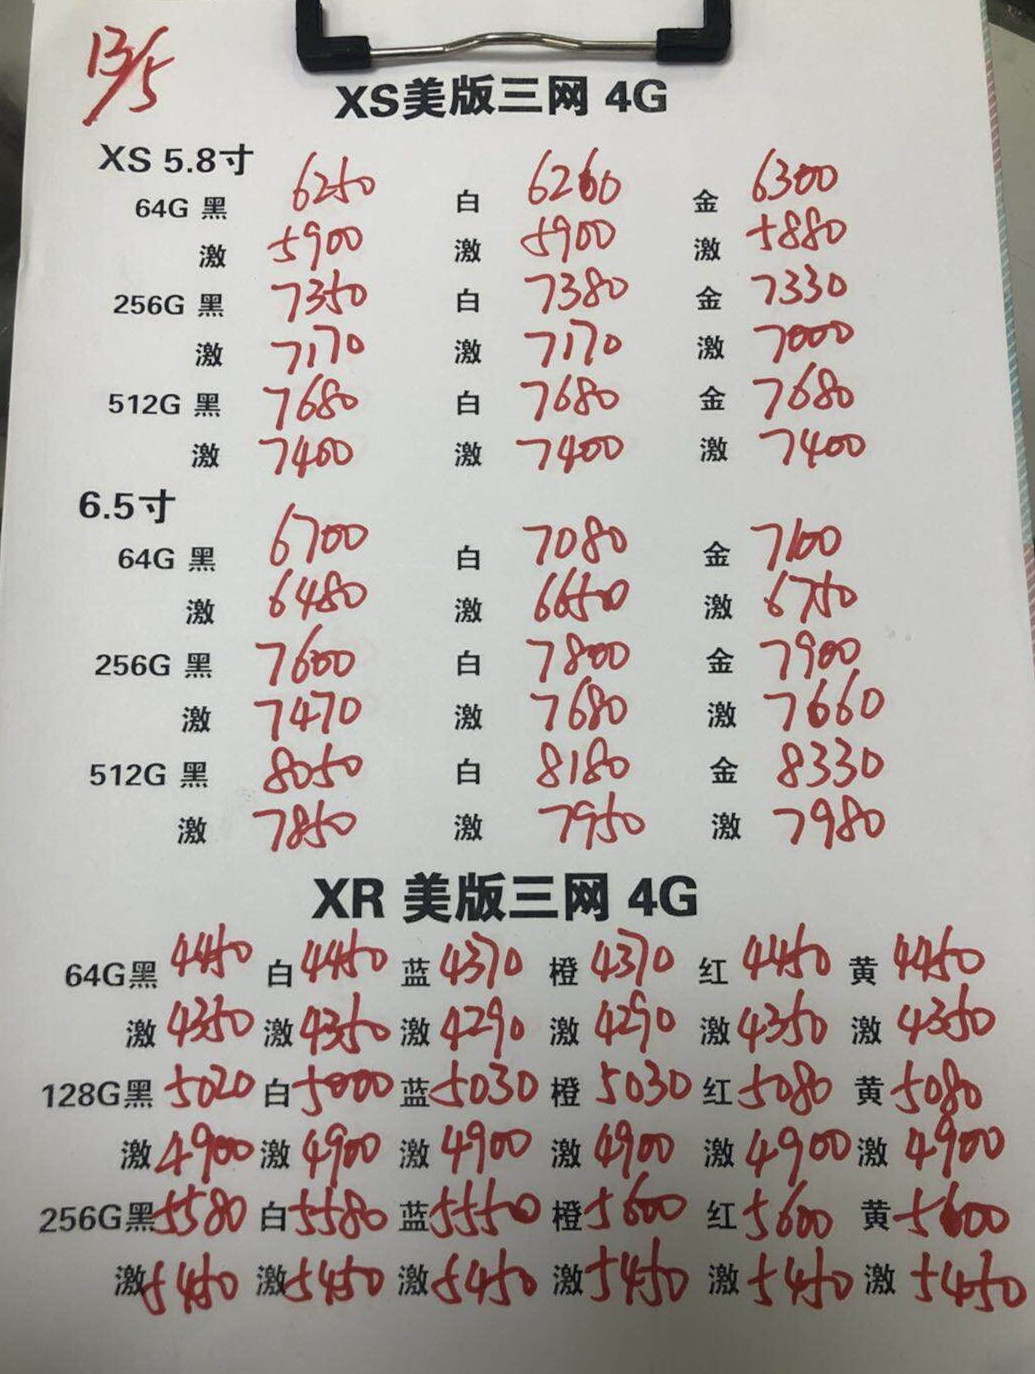 13/5
XS美版三网 4G
XS 5.8寸
64G 黑 6250 白 6260 金 6300
激 5900 激 5900 激 5880
256G 黑 7350 白 7380 金 7330
激 7170 激 7170 激 7000
512G 黑 7680 白 7680 金 7680
激 7400 激 7400 激 7400
6.5寸
64G 黑 6700 白 7080 金 7100
激 6480 激 6650 激 6750
256G 黑 7600 白 7800 金 7900
激 7470 激 7680 激 7660
512G 黑 8050 白 8180 金 8330
激 7850 激 7950 激 7980
XR 美版三网 4G
64G黑 4450 白 4450 蓝 4370 橙 4370 红 4450 黄 4450
激 4350 激 4350 激 4290 激 4290 激 4350 激 4350
128G黑 5020 白 5000 蓝 5030 橙 5030 红 5080 黄 5080
激 4900 激 4900 激 4900 激 4900 激 4900 激 4900
256G黑 5580 白 5580 蓝 5550 橙 5600 红 5600 黄 5600
激 5450 激 5450 激 5450 激 5450 激 5450 激 5450